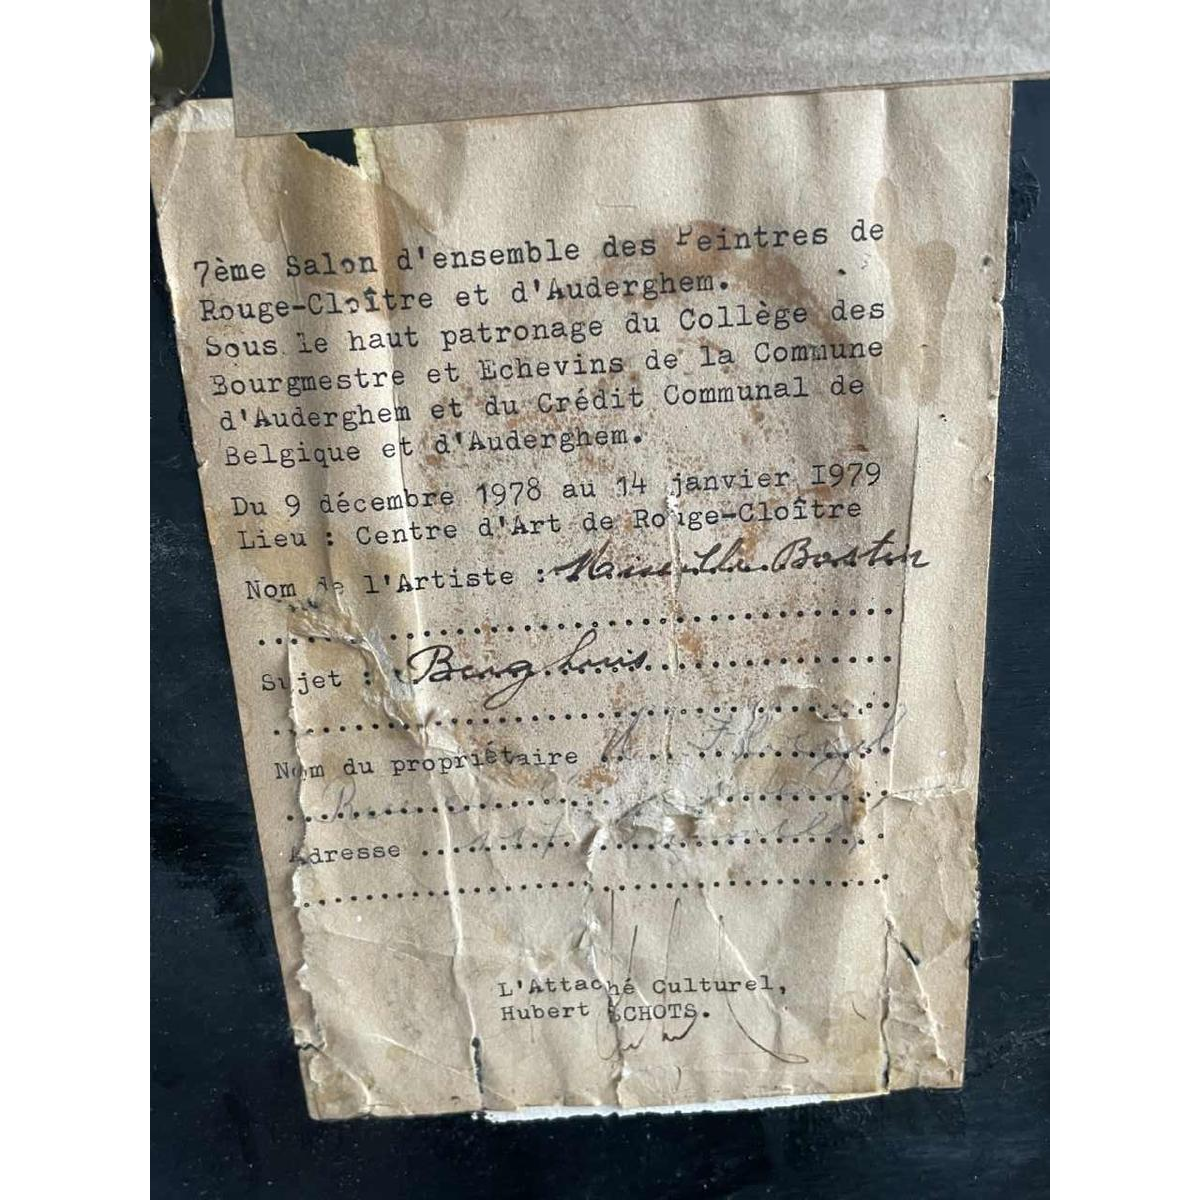 7ème Salon d'ensemble des Peintres de
Rouge-Cloître et d'Auderghem.
Sous le haut patronage du Collège des
Bourgmestre et Echevins de la Commune
d'Auderghem et du Crédit Communal de
Belgique et d'Auderghem.
Du 9 décembre 1978 au 14 janvier 1979
Lieu : Centre d'Art de Rouge-Cloître
Nom de l'Artiste : Bastin
Sujet :
Nom du propriétaire
Adresse
L'Attaché Culturel,
Hubert SCHOTS.